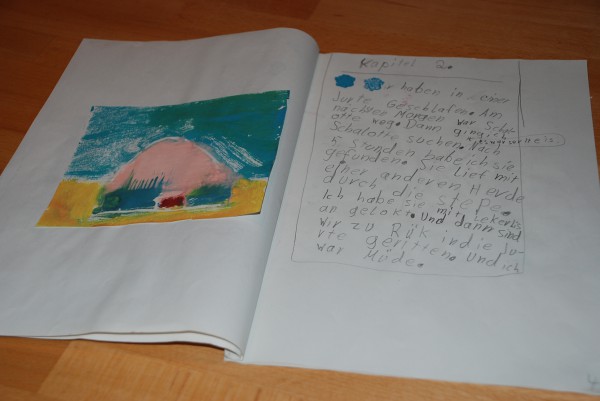 Kapitel 2.
r haben in einer
Jurte Geschlafen. Am
nächsten Morgen war Schal-
otte weg. Dann ging ich
Schalotte suchen. Nach
5 Stunden habe ich sie
gefunden. Sie Lief mit
einer anderen Herde
durch die stepe.
Ich habe sie mit Lekerbs
an gelokt. Und dann sind
wir zu Rük in die Ju-
rte geritten. Und ich
war Müde.
4